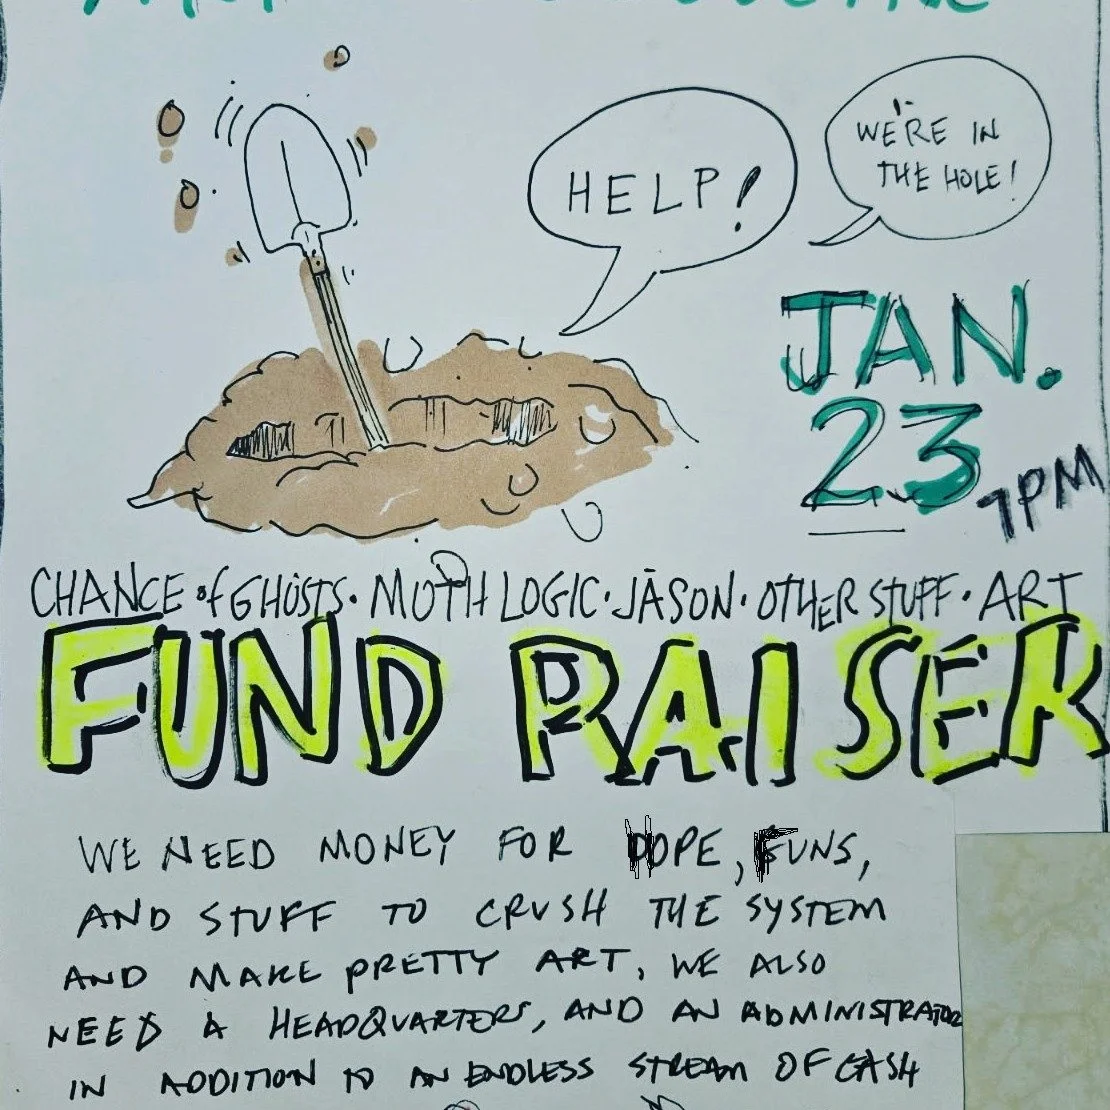 HELP!
WE'RE IN
THE HOLE!
JAN.
23
7PM
CHANCE of GHOSTS • MOTH LOGIC • JASON • OTHER STUFF • ART
FUND RAISER
WE NEED MONEY FOR HOPE, FUNS,
AND STUFF TO CRUSH THE SYSTEM
AND MAKE PRETTY ART, WE ALSO
NEED A HEADQUARTERS, AND AN ADMINISTRATOR
IN ADDITION TO AN ENDLESS STREAM OF CASH